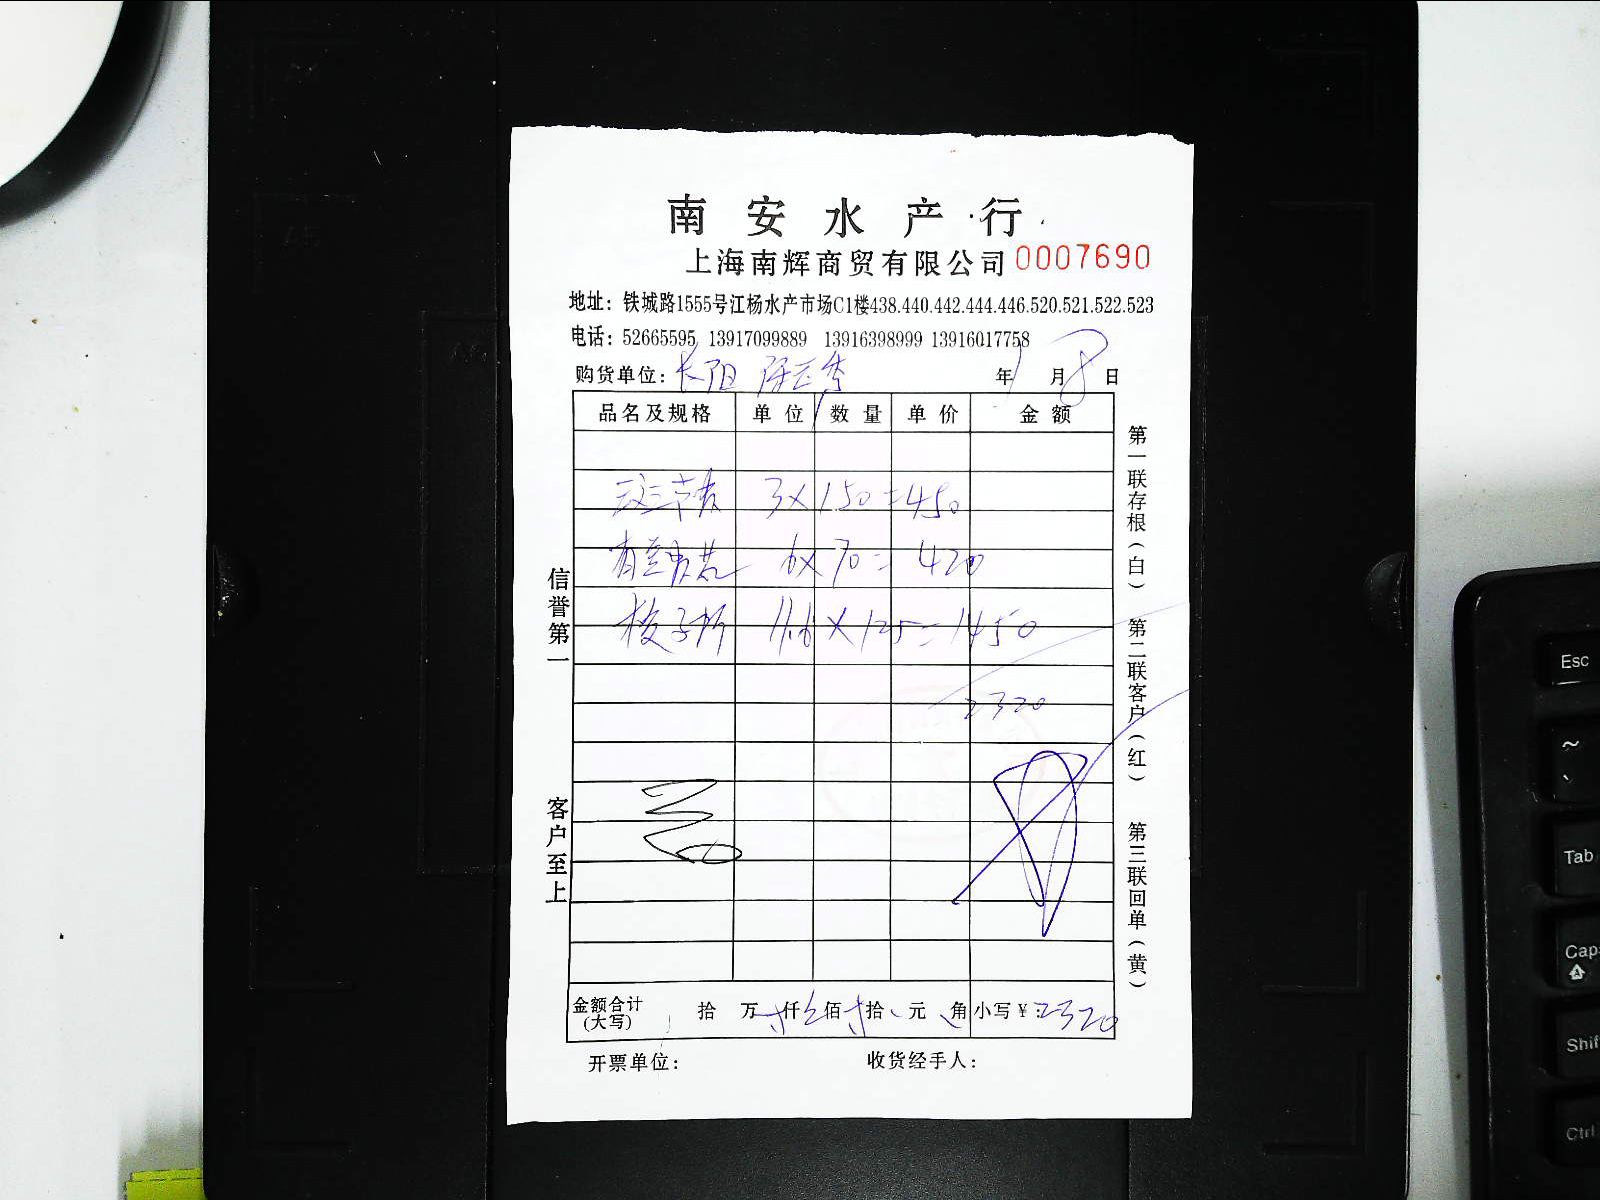 南安水产行
上海南辉商贸有限公司 0007690
地址：铁城路1555号江杨水产市场C1楼438.440.442.444.446.520.521.522.523
电话：52665595 13917099889 13916398999 13916017758
购货单位：长阳 1年 月8日
品名及规格 单位 数量 单价 金额
3×150=450
6×70=420
梭子 11.6×125=1450
2320
金额合计（大写） 拾 万 仟 佰 拾 元 角 小写￥：2320
开票单位： 收货经手人：
信誉第一
客户至上
第一联存根（白） 第二联客户（红） 第三联回单（黄）
Esc
~
`
Tab
Caps
Shif
Ctrl